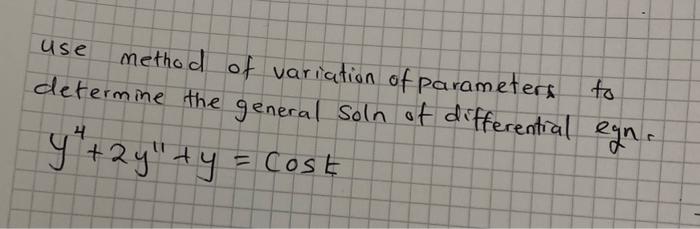 use method of variation of parameters to
determine the general soln of differential eqn.
y⁴ + 2y'' + y = cos t